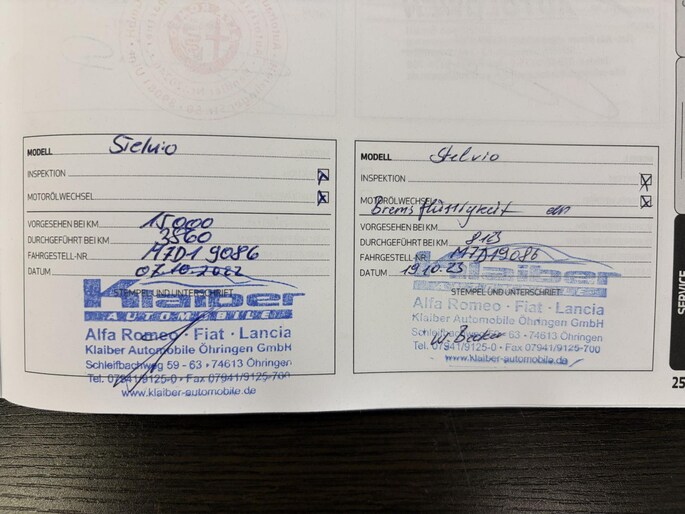 MODELL Stelvio
INSPEKTION
MOTORÖLWECHSEL
VORGESEHEN BEI KM 15000
DURCHGEFÜHRT BEI KM 3560
FAHRGESTELL-NR. M7D19086
DATUM 07.10.2022
STEMPEL UND UNTERSCHRIFT
Klaiber
AUTOMOBILE
Alfa Romeo · Fiat · Lancia
Klaiber Automobile Öhringen GmbH
Schleifbachweg 59 - 63 · 74613 Öhringen
Tel. 07941/9125-0 · Fax 07941/9125-700
www.klaiber-automobile.de
MODELL Stelvio
INSPEKTION
MOTORÖLWECHSEL
Bremsflüssigkeit
VORGESEHEN BEI KM
DURCHGEFÜHRT BEI KM 8123
FAHRGESTELL-NR. M7D19086
DATUM 19.10.23
Klaiber
STEMPEL UND UNTERSCHRIFT
Alfa Romeo · Fiat · Lancia
Klaiber Automobile Öhringen GmbH
Schleifbachweg 59 - 63 · 74613 Öhringen
W. Becker
Tel. 07941/9125-0 · Fax 07941/9125-700
www.klaiber-automobile.de
SERVICE
25